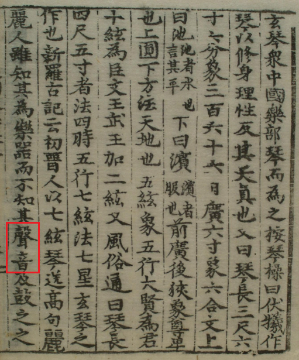 玄琴象中國樂部琴而為之按琴操曰伏犧作
琴以修身理性反其天真也又曰琴長三尺六
十六分象三百六十六日廣六寸象六合文上
曰池池者水也言其平下曰濱濱者服也前廣後狹象尊卑
也上圓下方法天地也五絃象五行大賢為君
十絃為臣文王武王加二絃又風俗通曰琴長
四尺五寸者法四時五行七絃法七星玄琴之
作也新羅古記云初晉人以七絃琴送高句麗
麗人雖知其為樂器而不知其聲音及鼓之之